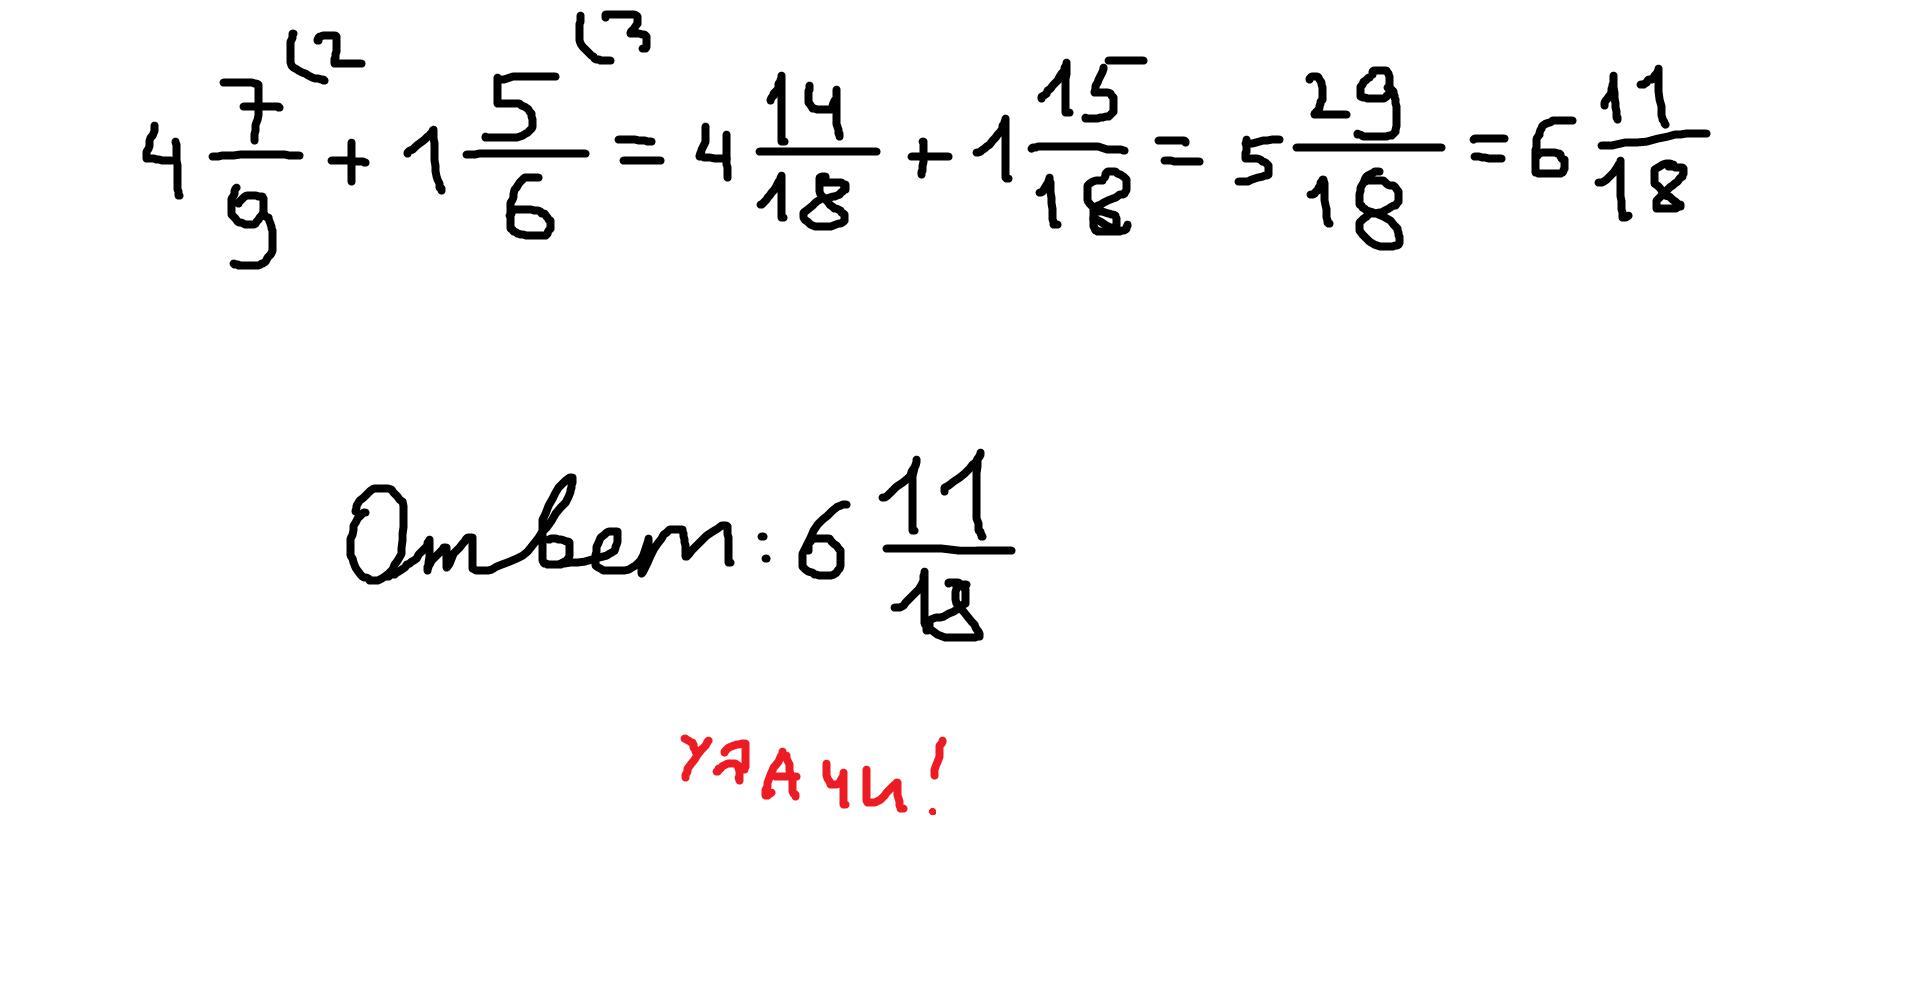 4 7/9 (2 + 1 5/6 (3 = 4 14/18 + 1 15/18 = 5 29/18 = 6 11/18
Ответ: 6 11/18
УДАЧИ!